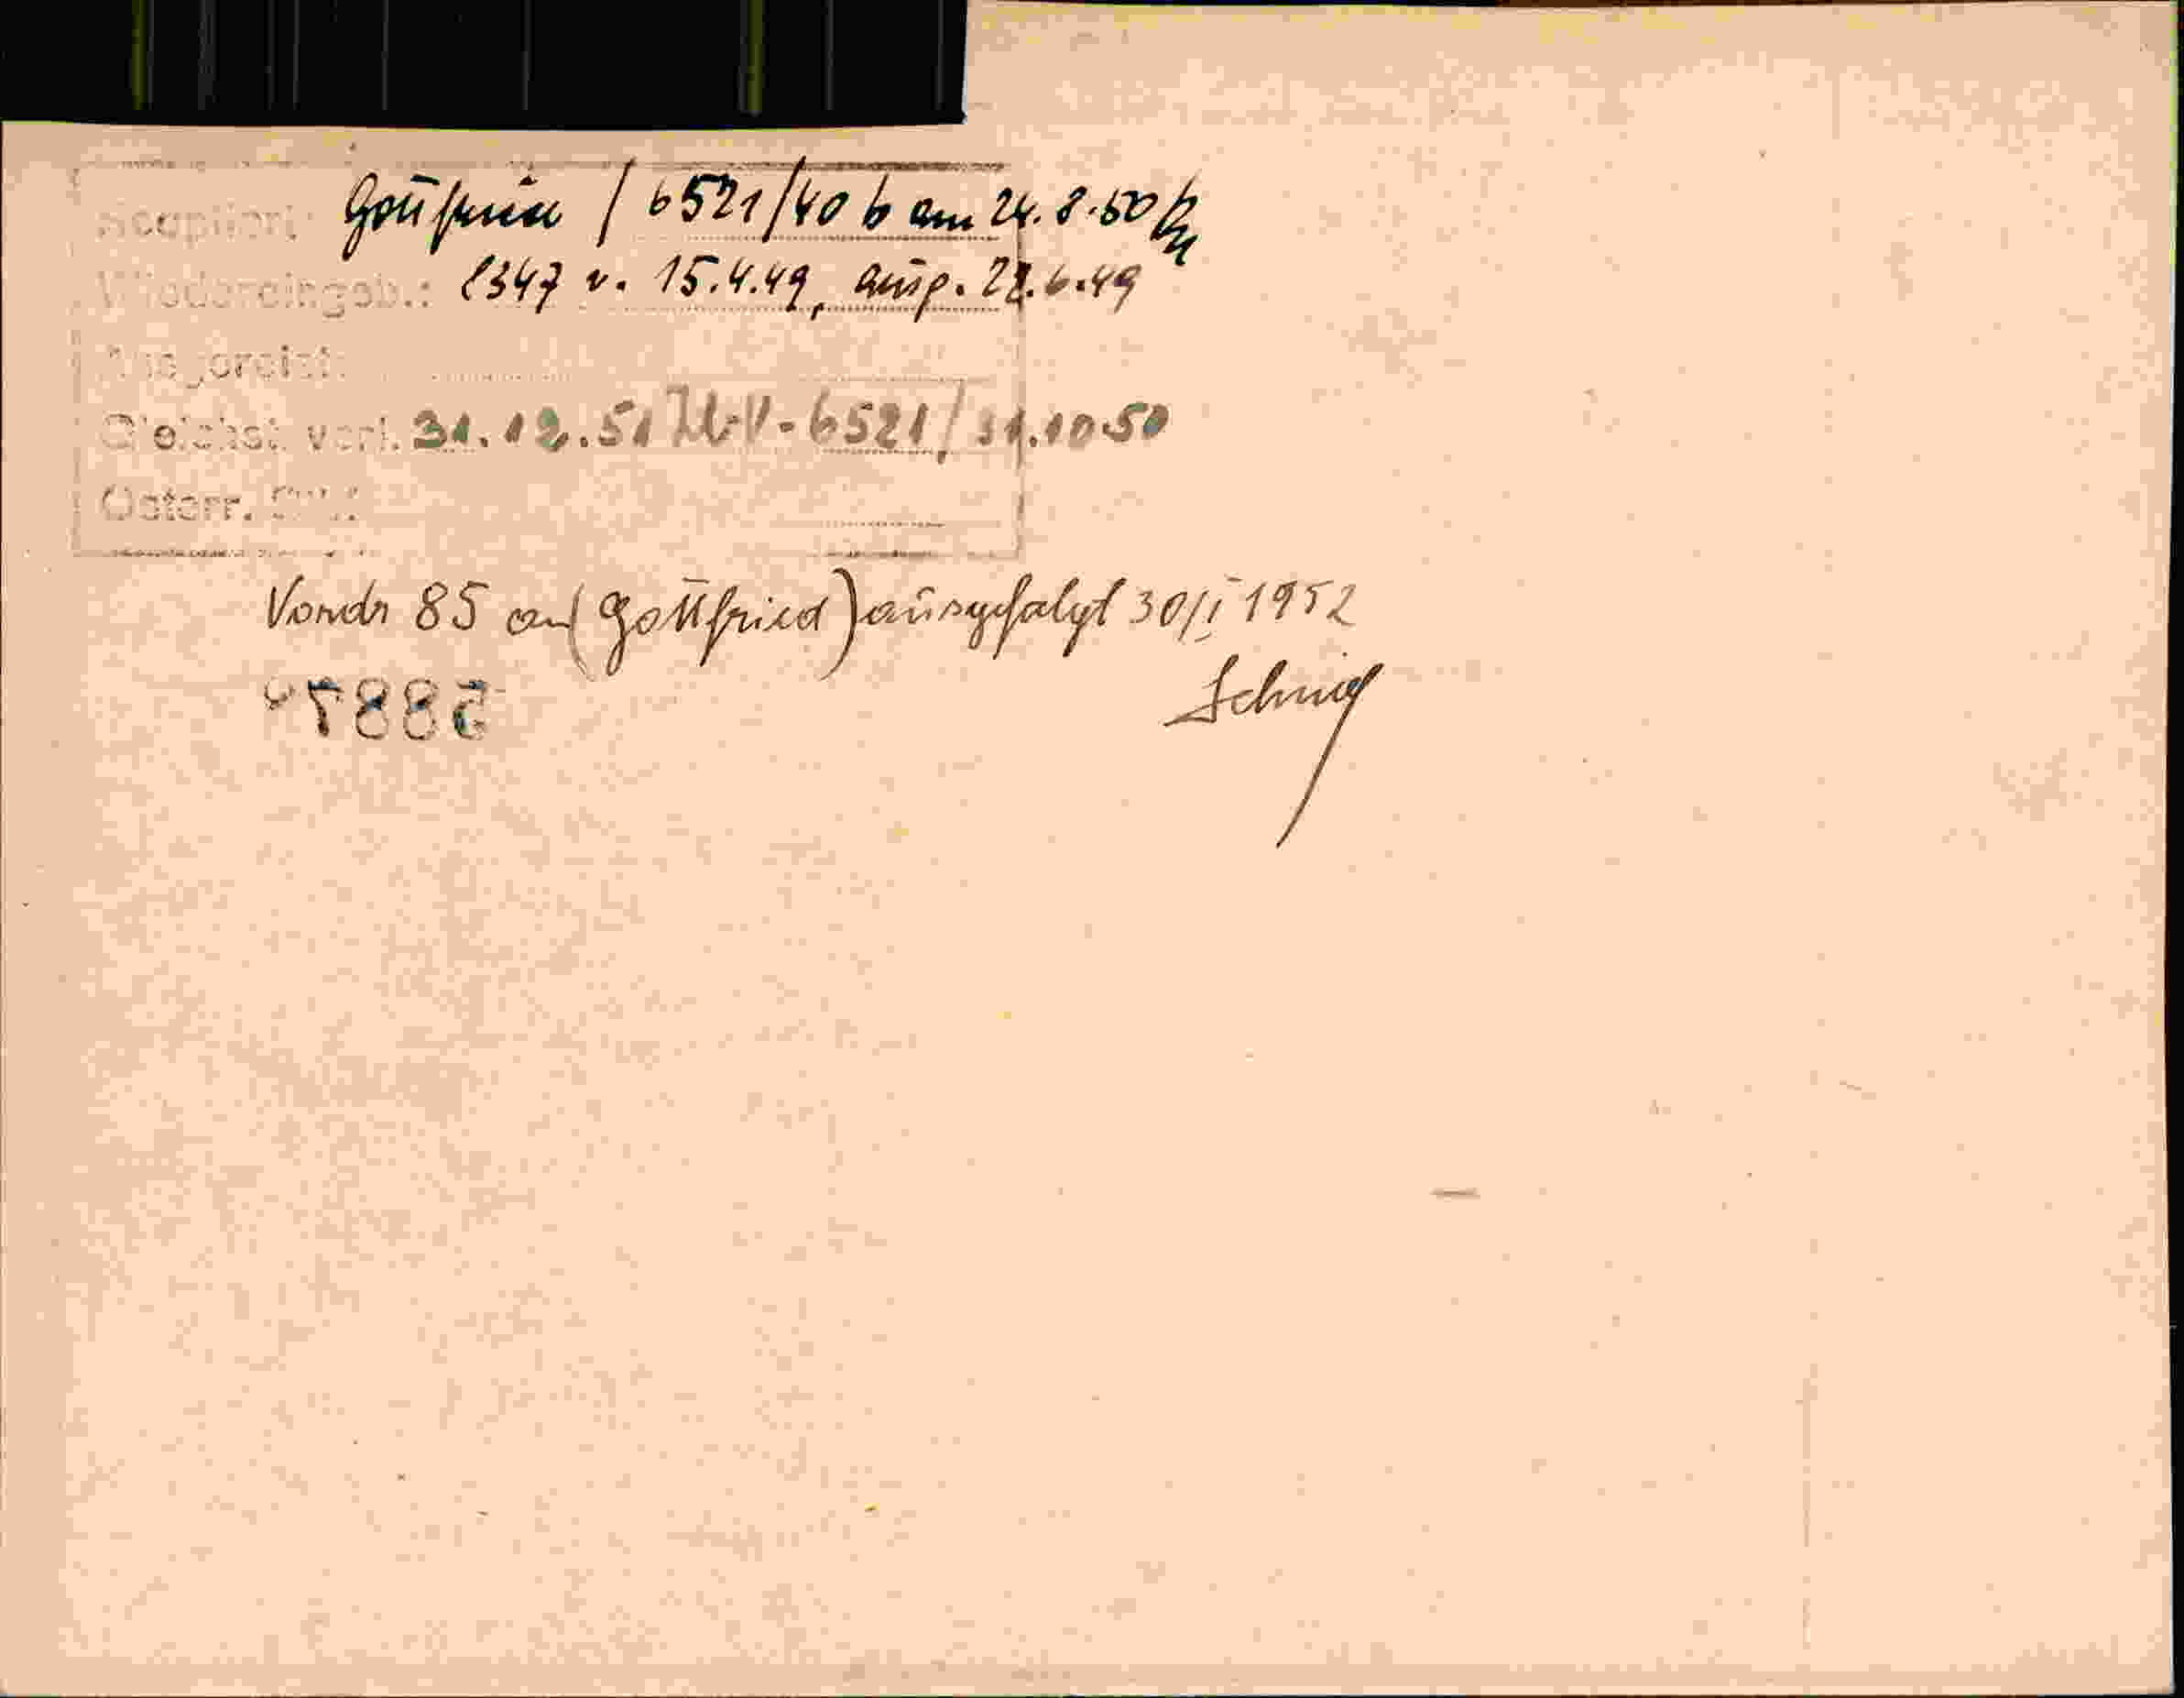 Acaptiert: Gottfried / 6521/40 b am 24.8.50
Wiedereingeb.: 1347 v. 15.4.49, ausg. 22.6.49
Gleichst. verl. 31.12.51 - 6521/ 31.10.50
Österr.
Vordr 85 an (Gottfried) ausgefolgt 30/I 1952
5887